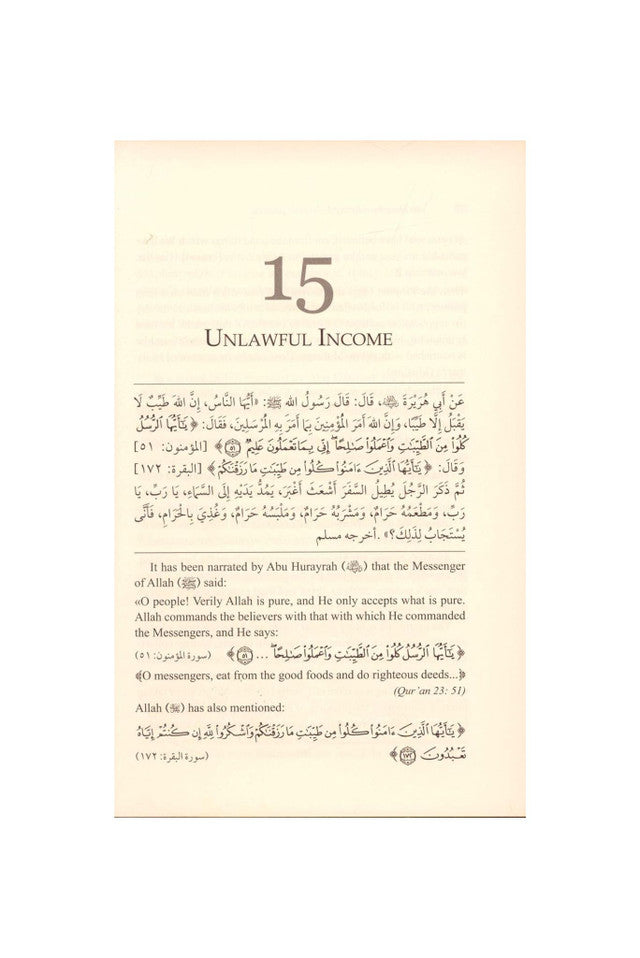 15
UNLAWFUL INCOME
عَنْ أَبِي هُرَيْرَةَ ﵁، قَالَ: قَالَ رَسُولُ اللهِ ﷺ: «أَيُّهَا النَّاسُ، إِنَّ اللهَ طَيِّبٌ لَا
يَقْبَلُ إِلَّا طَيِّبًا، وَإِنَّ اللهَ أَمَرَ الْمُؤْمِنِينَ بِمَا أَمَرَ بِهِ الْمُرْسَلِينَ، فَقَالَ: ﴿يَٰٓأَيُّهَا ٱلرُّسُلُ
كُلُوا۟ مِنَ ٱلطَّيِّبَٰتِ وَٱعْمَلُوا۟ صَٰلِحًا ۖ إِنِّى بِمَا تَعْمَلُونَ عَلِيمٌ ۝٥١﴾ [المؤمنون: ٥١]
وَقَالَ: ﴿يَٰٓأَيُّهَا ٱلَّذِينَ ءَامَنُوا۟ كُلُوا۟ مِن طَيِّبَٰتِ مَا رَزَقْنَٰكُمْ﴾ [البقرة: ١٧٢]
ثُمَّ ذَكَرَ الرَّجُلَ يُطِيلُ السَّفَرَ أَشْعَثَ أَغْبَرَ، يَمُدُّ يَدَيْهِ إِلَى السَّمَاءِ، يَا رَبِّ، يَا
رَبِّ، وَمَطْعَمُهُ حَرَامٌ، وَمَشْرَبُهُ حَرَامٌ، وَمَلْبَسُهُ حَرَامٌ، وَغُذِيَ بِالْحَرَامِ، فَأَنَّى
يُسْتَجَابُ لِذَلِكَ؟» . أخرجه مسلم
It has been narrated by Abu Hurayrah (﵁) that the Messenger
of Allah (ﷺ) said:
«O people! Verily Allah is pure, and He only accepts what is pure.
Allah commands the believers with that with which He commanded
the Messengers, and He says:
﴿يَٰٓأَيُّهَا ٱلرُّسُلُ كُلُوا۟ مِنَ ٱلطَّيِّبَٰتِ وَٱعْمَلُوا۟ صَٰلِحًا ۖ ... ۝٥١﴾ (سورة المؤمنون: ٥١)
﴾O messengers, eat from the good foods and do righteous deeds...﴿
(Qur'an 23: 51)
Allah (ﷻ) has also mentioned:
﴿يَٰٓأَيُّهَا ٱلَّذِينَ ءَامَنُوا۟ كُلُوا۟ مِن طَيِّبَٰتِ مَا رَزَقْنَٰكُمْ وَٱشْكُرُوا۟ لِلَّهِ إِن كُنتُمْ إِيَّاهُ
تَعْبُدُونَ ۝١٧٢﴾ (سورة البقرة: ١٧٢)